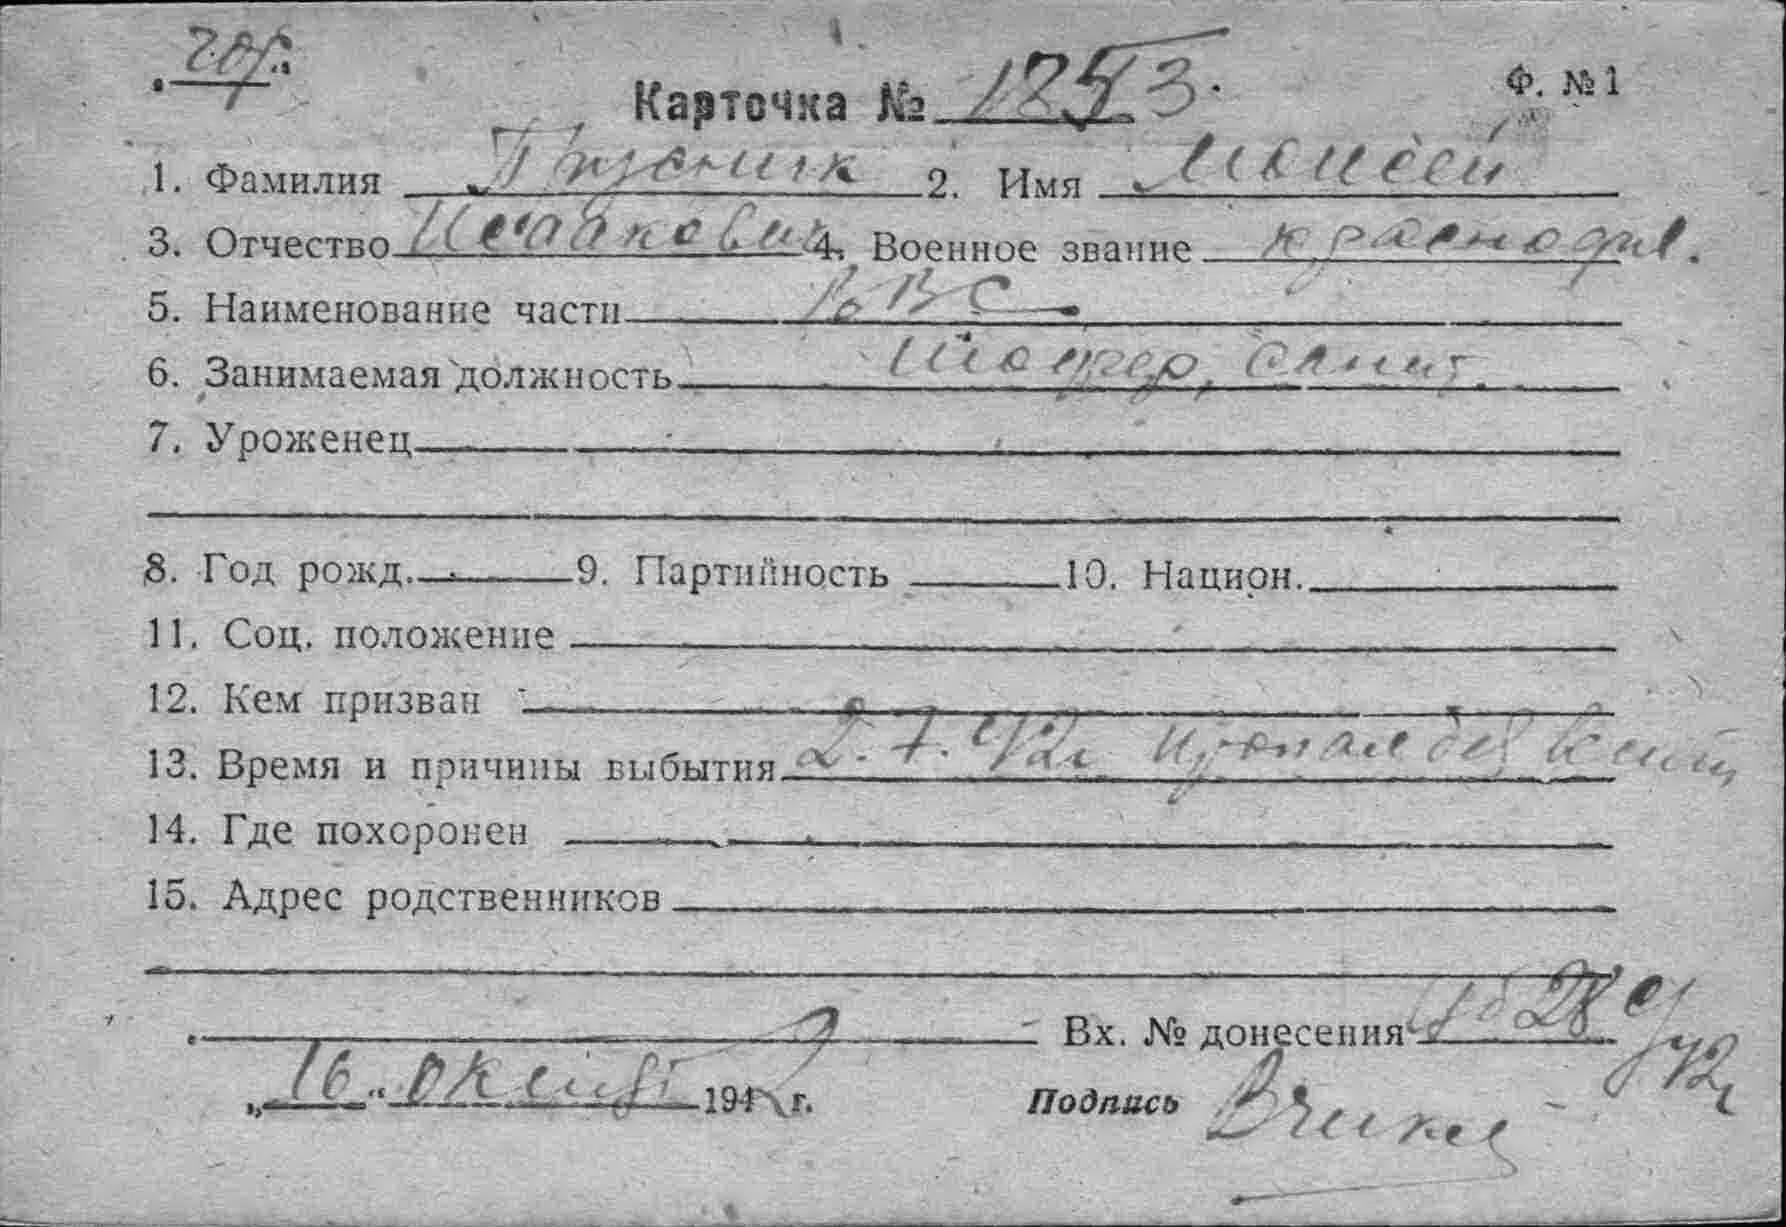 Карточка № 1253. Ф. № 1
1. Фамилия Трусник 2. Имя Моисей
3. Отчество Исаакович 4. Военное звание краснофл.
5. Наименование части ВВС
6. Занимаемая должность Шофер,
7. Уроженец
8. Год рожд. 9. Партийность 10. Национ.
11. Соц. положение
12. Кем призван
13. Время и причины выбытия 2.7.42г пропал без вести
14. Где похоронен
15. Адрес родственников
Вх. № донесения
„16“ октяб 1942 г. Подпись